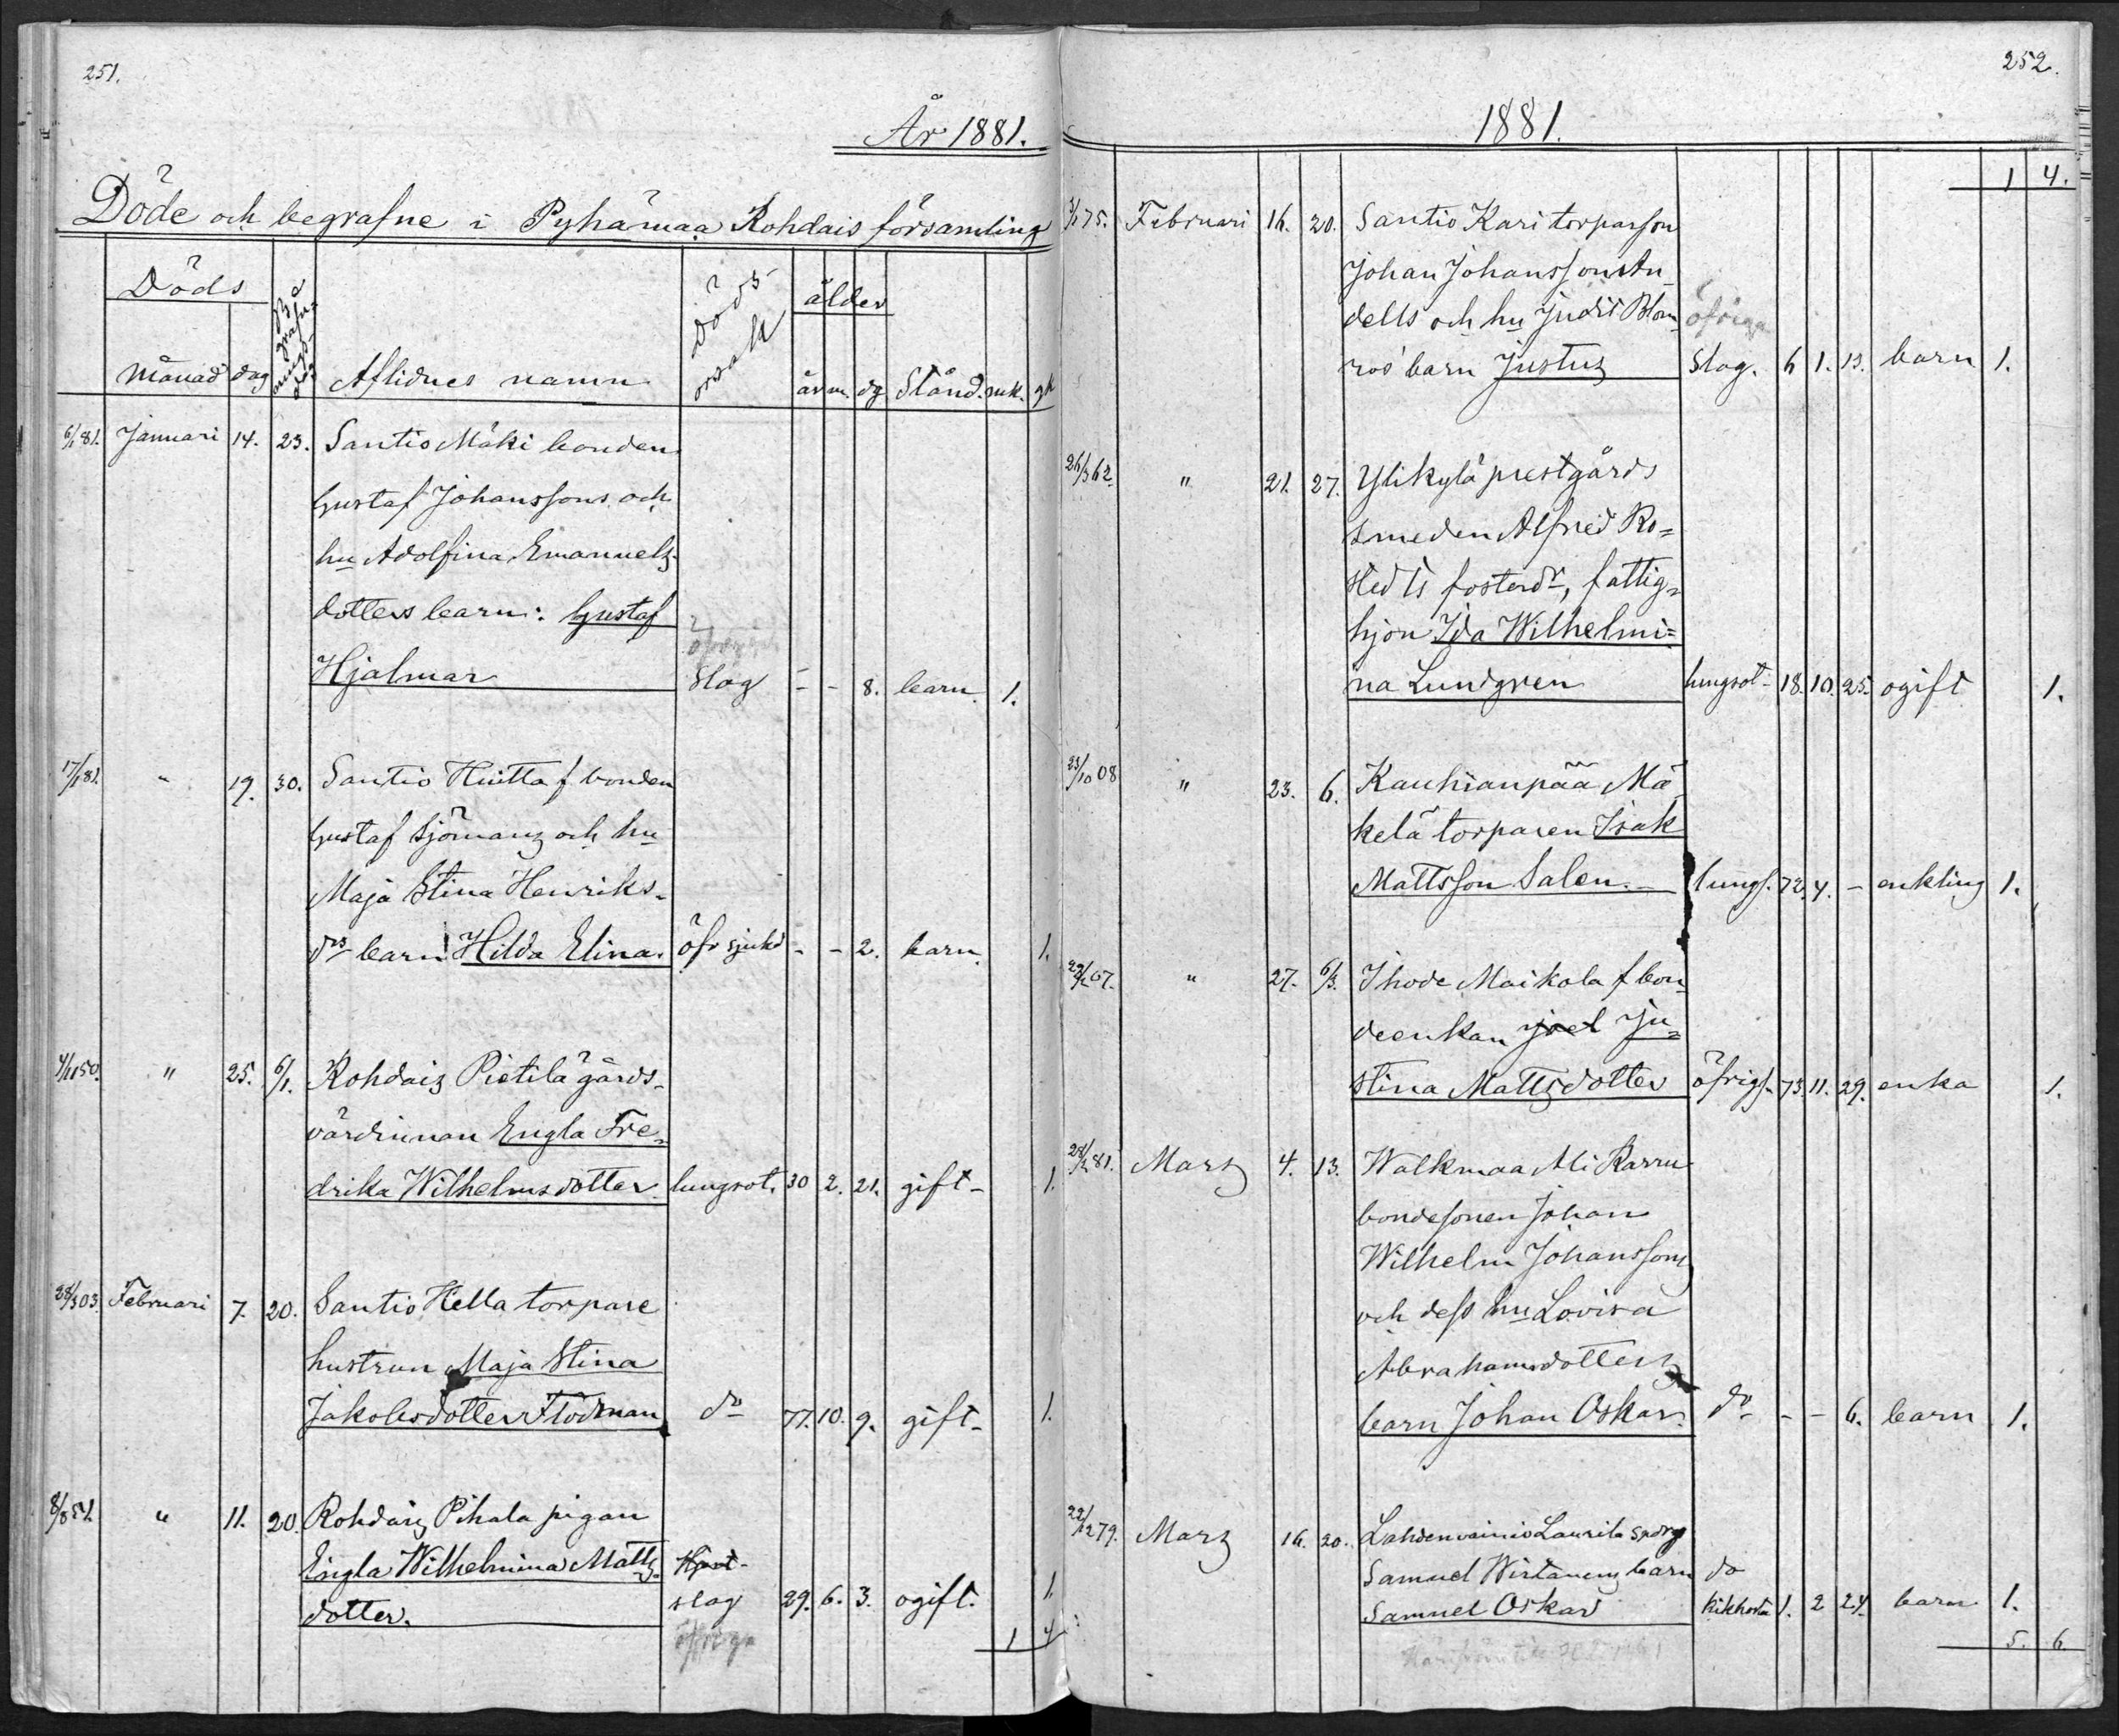 251.
År 1881.
Döde och begrafne i Pyhämaa Rohdais församling
Döds
månad dag
Be grafnings dag
Aflidnes namn
Döds orsak
ålder
år m. dg Stånd. mk. qk
6/1 81. Januari 14. 23. Santio Mäki bonden
Gustaf Johanssons och
hu Adolfina Emanuels-
dotters barn: Gustaf
öfriga
Hjalmar Slag - - 8. barn. 1.
17/1 81. " 19. 30. Santio Huitta f bonden
Gustaf Sjömans och hu
Maja Stina Henriks-
drs barn: Hilda Elina. öfr sjukd - - 2. barn. 1.
4/11 50. " 25. 6/1. Rohdais Pietilä gårds-
värdinnan Engla Fre-
drika Wilhelmsdotter. lungsot. 30 2. 21. gift- 1.
28/3 03. Februari 7. 20. Santio Hella torpare
hustrun Maja Stina
Jakobsdotter Flodman do 77. 10. 9. gift- 1.
8/8 51. " 11. 20. Rohdais Pihala pigan
Engla Wilhelmina Matts-
dotter. slag 29. 6. 3. ogift. 1.
öfriga
1 4
252.
1881.
1 4.
3/1 75. Februari 16. 20. Santio Kari torparson
Johan Johansson An-
dells och hu Judit Blom- öfriga
ros' barn Justus Slag. 6 1. 13. barn 1.
26/3 62. " 21. 27. Ylikylä prestgårds
smeden Alfred Ro=
stedts fosterdr, fattig-
hjon Ida Wilhelmi=
na Lundgren lungsot- 18. 10. 25. ogift 1.
23/10 08 " 23. 6. Kauhianpää Mä
kelä torparen Isak
Mattsson Salen. lungs. 72. 4. - enkling 1.
" 27. 6/3. Ihode Maikola f bon-
deenkan Ju=
stina Mattsdotter öfrigs. 73. 11. 29. enka 1.
28/2 81. Mars 4. 13. Walkmaa Ali Karru
bondesonen Johan
Wilhelm Johanssons
och dess hu Lovisa
Abrahamsdotters
barn Johan Oskar. do - - 6. barn 1.
22/12 79. Mars 16. 20. Lahdenvainio Laurila
Samuel Wirtanens barn do
Samuel Oskar Kikhosta 1. 2 24. barn 1.
5. 6